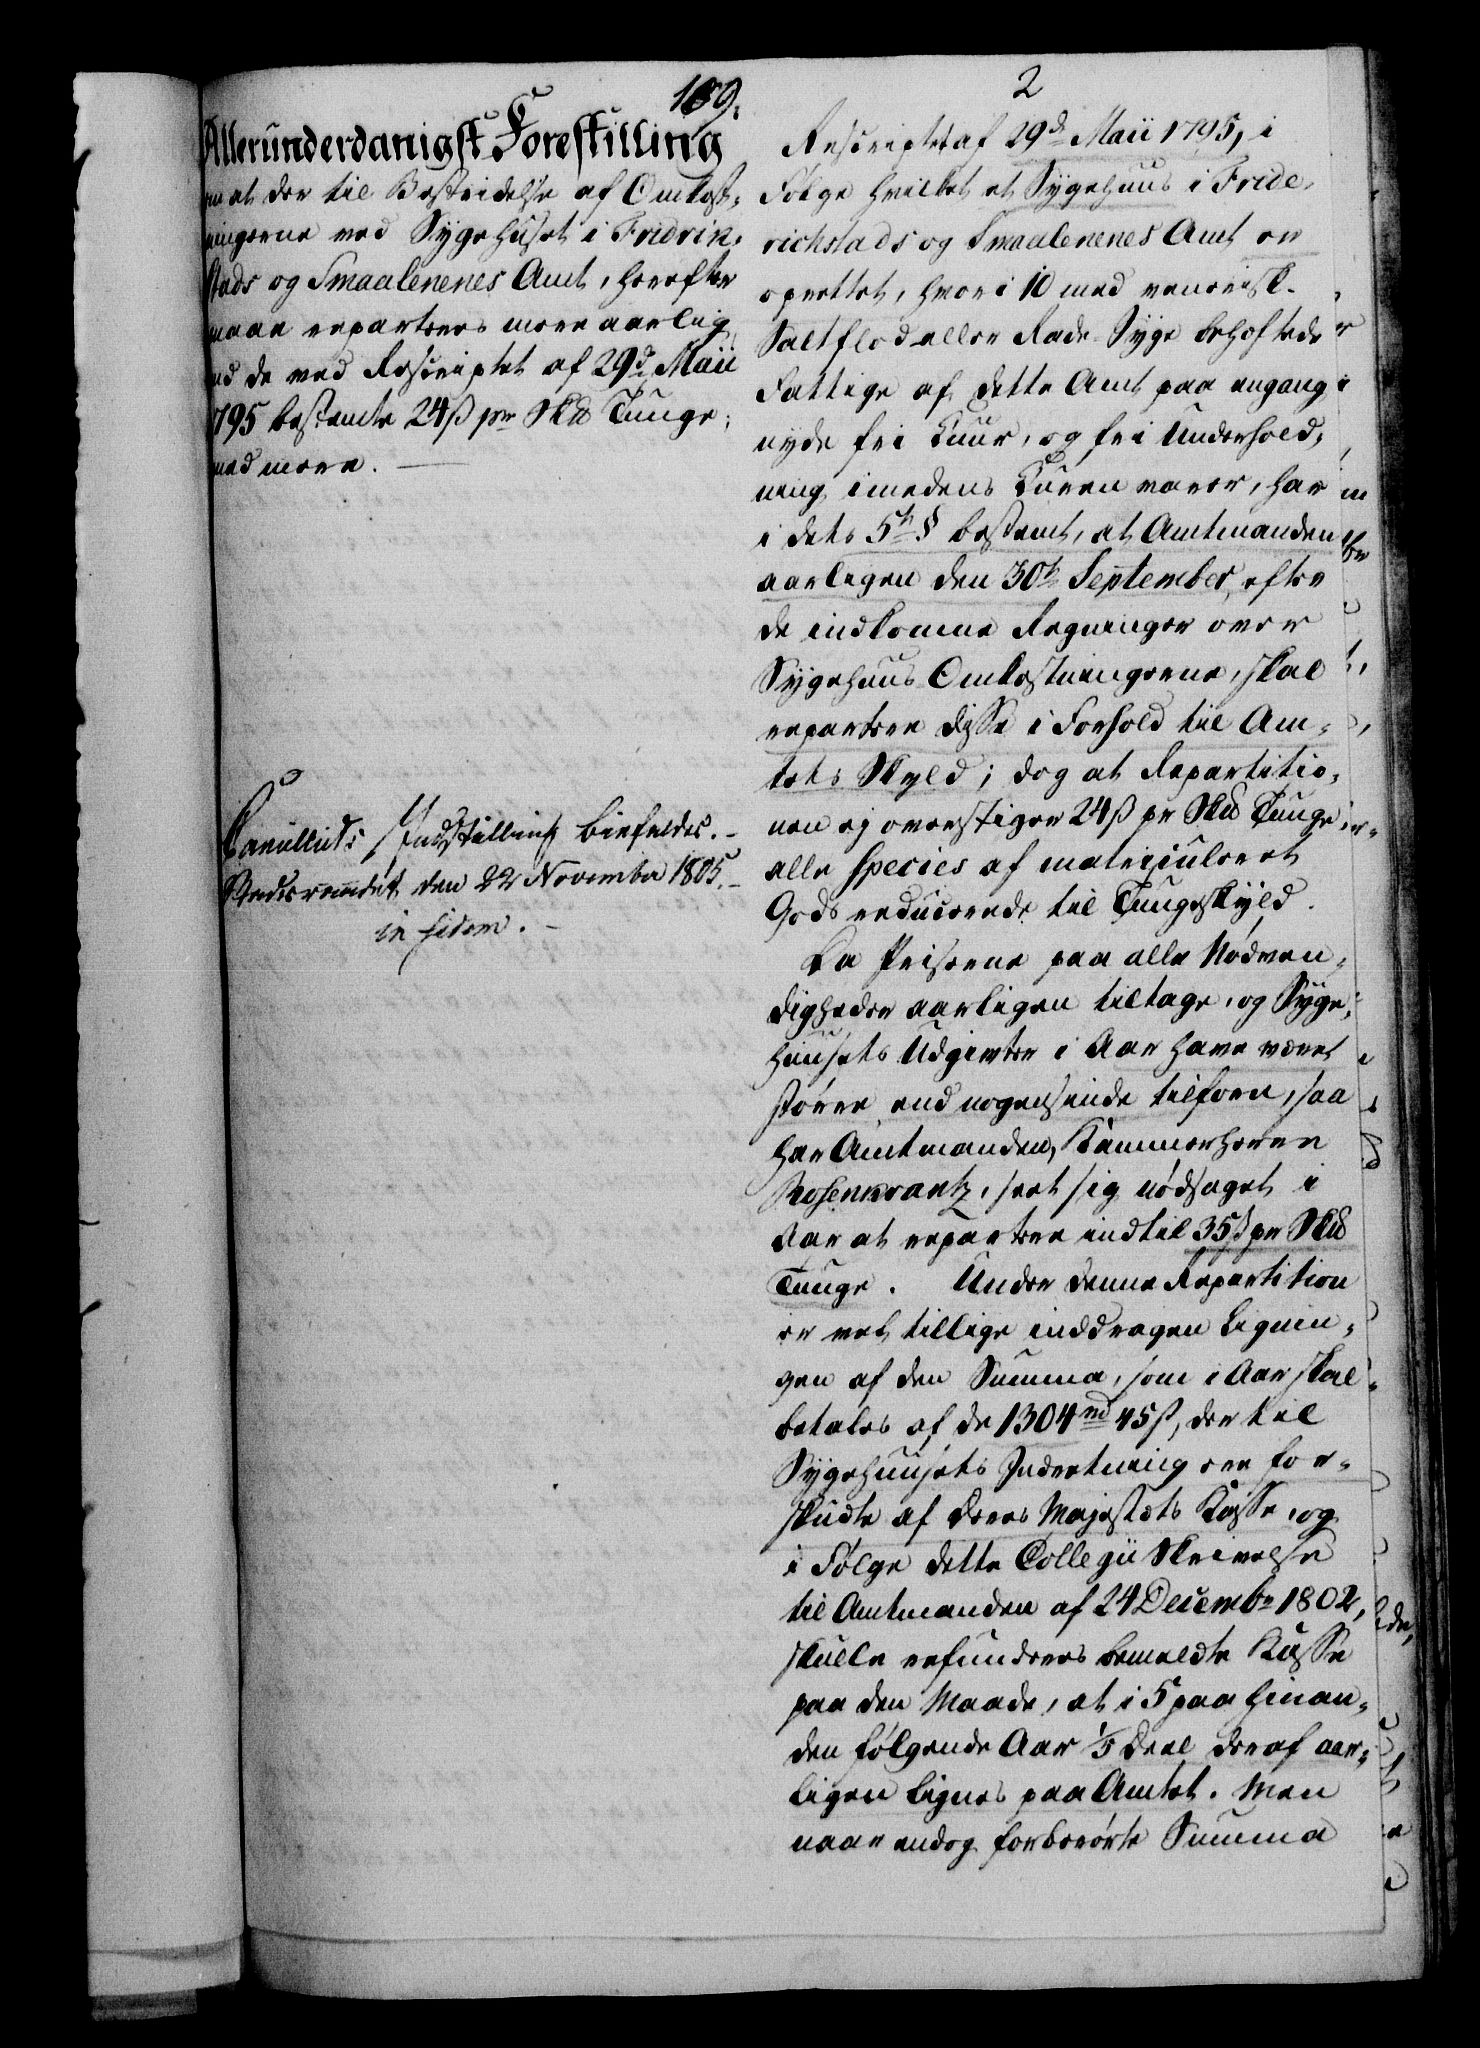 169.
2
Allerunderdanigst Forestilling
om at der til Bestridelse af Omkost-
ningerne ved Sygehuset i Fridrik-
stads og Smaalenenes Amt, herefter
maae reparteres mere aarlig
end de ved Rescriptet af 29d Maii
1795 bestemte 24ß pr Sk℔ Tunge,
med mere.
Canellids Indstilling biefaldes.
Rendsremdet den 22 November 1805.
in fidem.
Rescriptet af 29d Maii 1795, i
Følge hvilket et Sygehuus i Fride-
richstads og Smaalenenes Amt er
oprettet, hvori 10 med venerisk-
Saltflod eller Rade-Syge behæftede
Fattige af dette Amt paa engang
nyde fri Kuur, og fri Underhold-
ning imedens Kuren varer, har
i dets 5te § bestemt, at Amtmanden
aarligen den 30te September, efter
de indkomne Regninger over
Sygehuus-Omkostningerne, skal
repartere disse i Forhold til Am-
tets Skyld; dog at Repartitio-
nen ej overstiger 24ß pr Sk℔ Tunge
alle Species af matriculeret
Gods reducerede til Tungeskyld.
Da Priserne paa alle Nødven-
digheder aarligen tiltage, og Syge-
huusets Udgivter i Aar have været
større end nogensinde tilforn, saa
har Amtmanden, Kammerherre
Rosenkrantz, seet sig nødsaget i
Aar at repartere indtil 35ß pr Sk℔
Tunge. Under denne Repartition
er vel tillige inddragen Lignin-
gen af den Summa, som i Aar skal
betales af de 1304rd 45ß, der til
Sygehuusets Indretning ere for-
skudte af Deres Majestæts Kasse, og
i Følge dette Collegii Skrivelse
til Amtmanden af 24 Decembr 1802,
skulle refunderes bemeldte Kasse
paa den Maade, at i 5 paa hinan-
den følgende Aar 1/5 Deel deraf aar-
ligen lignes paa Amtet. Men
naar endog forberørte Summa